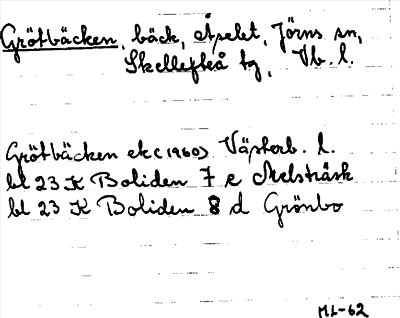 Grötbäcken, bäck, Åselet, Jörns sn,
Skellefteå tg, Vb. l.
Grötbäcken ek (1960) Västerb. l.
bl 23 K Boliden 7 e Melsträsk
bl 23 K Boliden 8 d Grönbo
ML-62